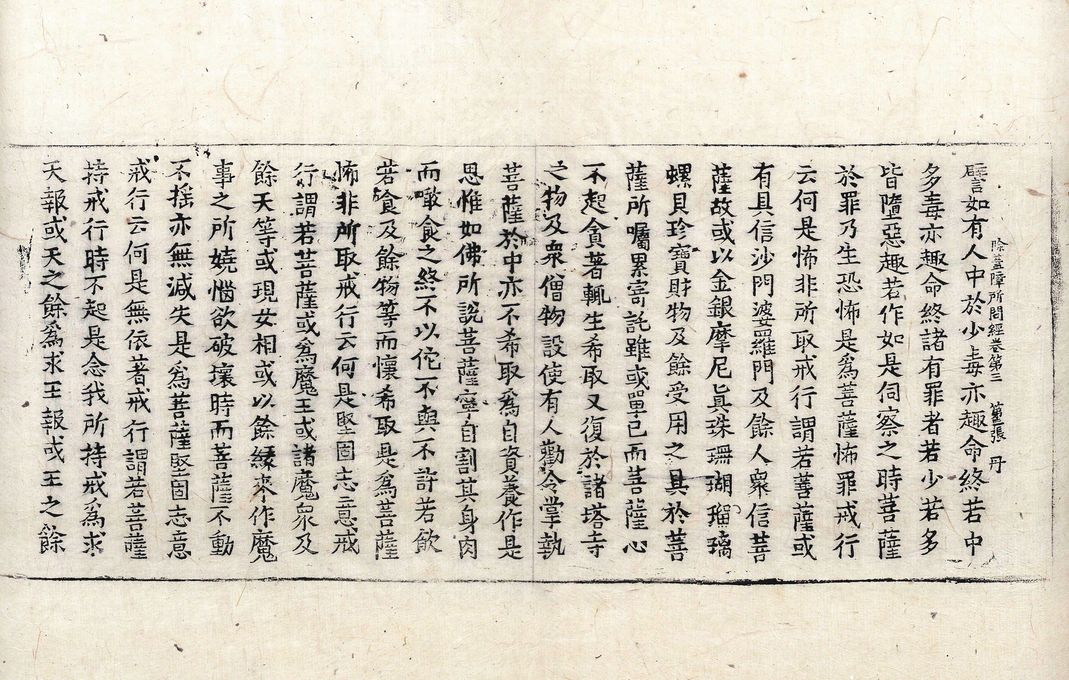 除蓋障所問經卷第三 第 張 丹
譬如有人中於少毒亦趣命終若中
多毒亦趣命終諸有罪者若少若多
皆墮惡趣若作如是伺察之時菩薩
於罪乃生恐怖是爲菩薩怖罪戒行
云何是怖非所取戒行謂若菩薩或
有具信沙門婆羅門及餘人衆信菩
薩故或以金銀摩尼眞珠珊瑚瑠璃
螺貝珍寶財物及餘受用之具於菩
薩所囑累寄託雖或單己而菩薩心
不起貪著輒生希取又復於諸塔寺
之物及衆僧物設使有人勸令掌執
菩薩於中亦不希取爲自資養作是
思惟如佛所說菩薩寧自割其身肉
而噉食之終不以佗不與不許若飲
若食及餘物等而懷希取是爲菩薩
怖非所取戒行云何是堅固志意戒
行謂若菩薩或爲魔王或諸魔衆及
餘天等或現女相或以餘緣來作魔
事之所嬈惱欲破壞時而菩薩不動
不搖亦無減失是爲菩薩堅固志意
戒行云何是無依著戒行謂若菩薩
持戒行時不起是念我所持戒爲求
天報或天之餘爲求王報或王之餘